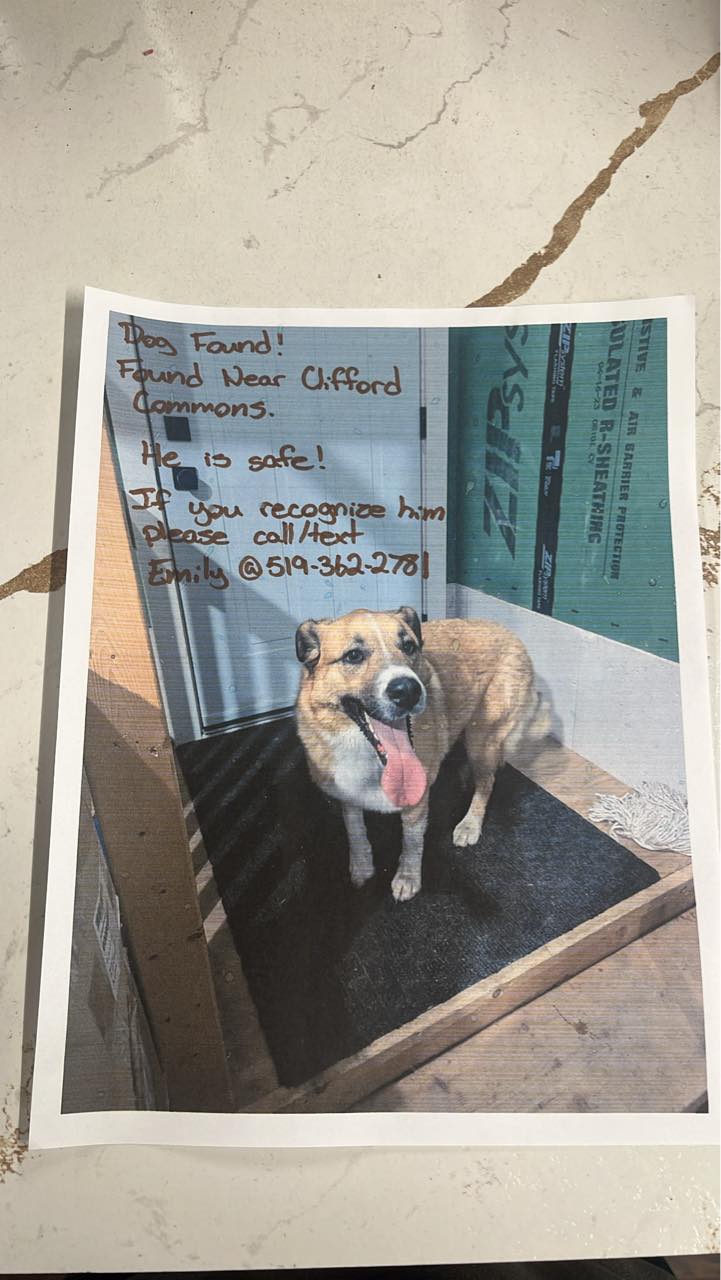 Dog Found!
Found Near Clifford
Commons.
He is safe!
If you recognize him
please call/text
Emily @ 519-362-2781
ZIPSYS
ZIPSystem
FLASHING TAPE
ZIPSystem
STIVE & AIR BARRIER PROTECTION
ULATED R-SHEATHING